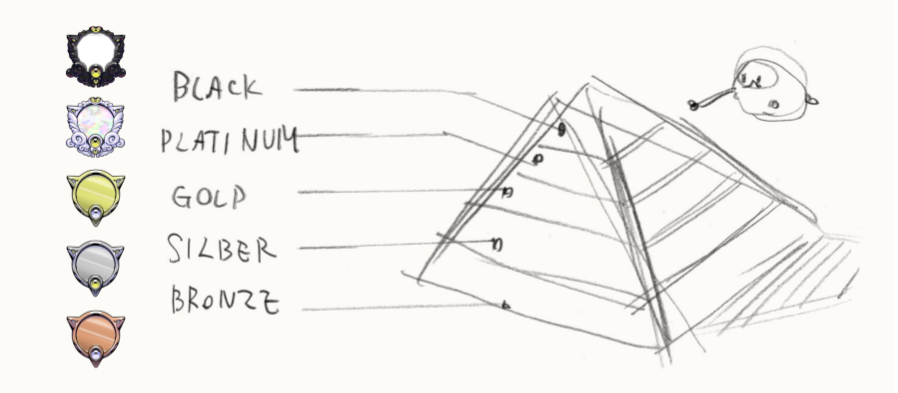 BLACK
PLATINUM
GOLD
SILBER
BRONZE